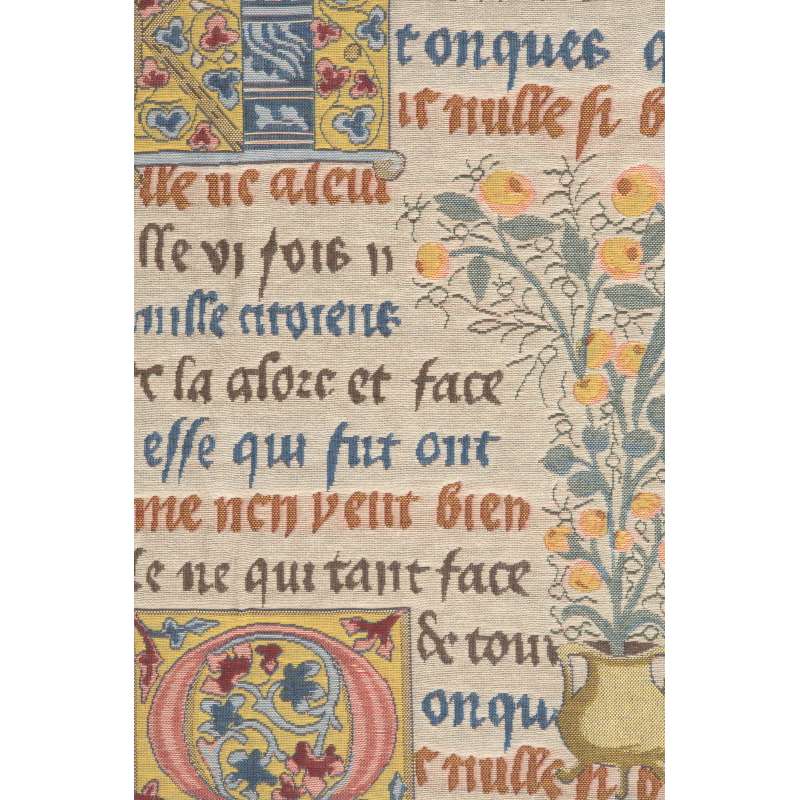 tonques q
ur nulle si b
ille ne alcui
lle vi fois n
mille citoiens
la alorc et face
esse qui fut ont
me nen veut bien
le ne qui tant face
& tout
onqu
r nulle si b